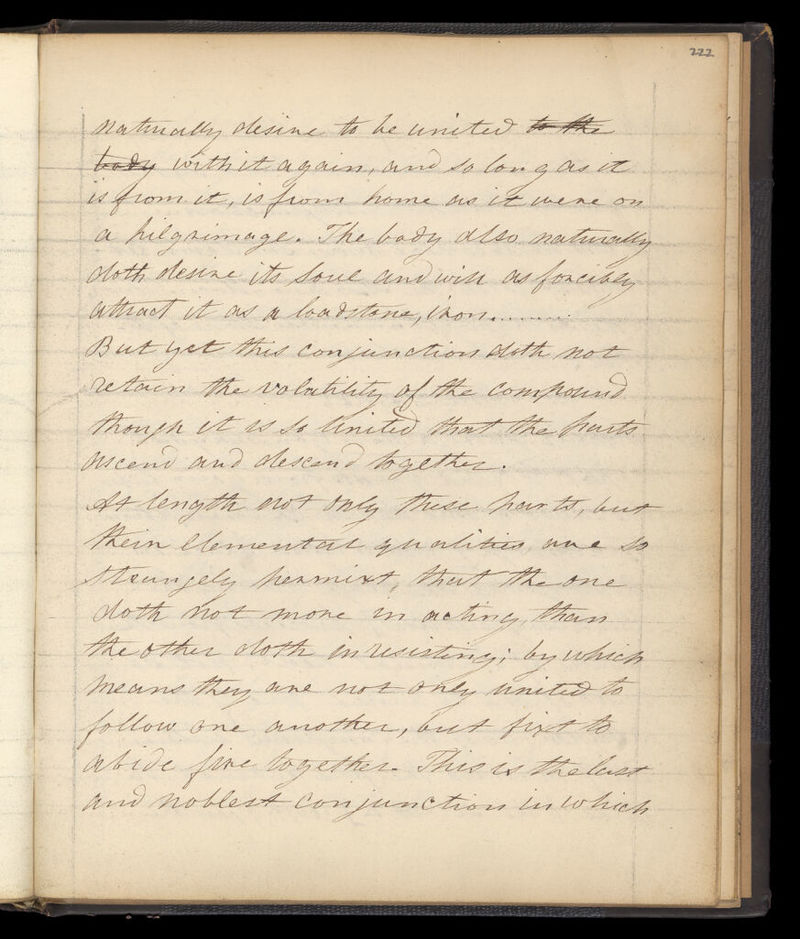 222
naturally desire to be united to the
body with it again, and so long as it
is from it, is from home as it were on
a pilgrimage. The body also naturally
doth desire its soul and will as forcibly
attract it as a loadstone, iron.........
But yet this conjunction doth not
retain the volatility of the compound
though it is so united that the parts
ascend and descend together.
At length not only these parts, but
their elemental qualities are so
strangely permixt, that the one
doth not more in acting, than
the other doth in resisting; by which
means they are not only united to
follow one another, but fixt to
abide fire together. This is the last
and noblest conjunction in which